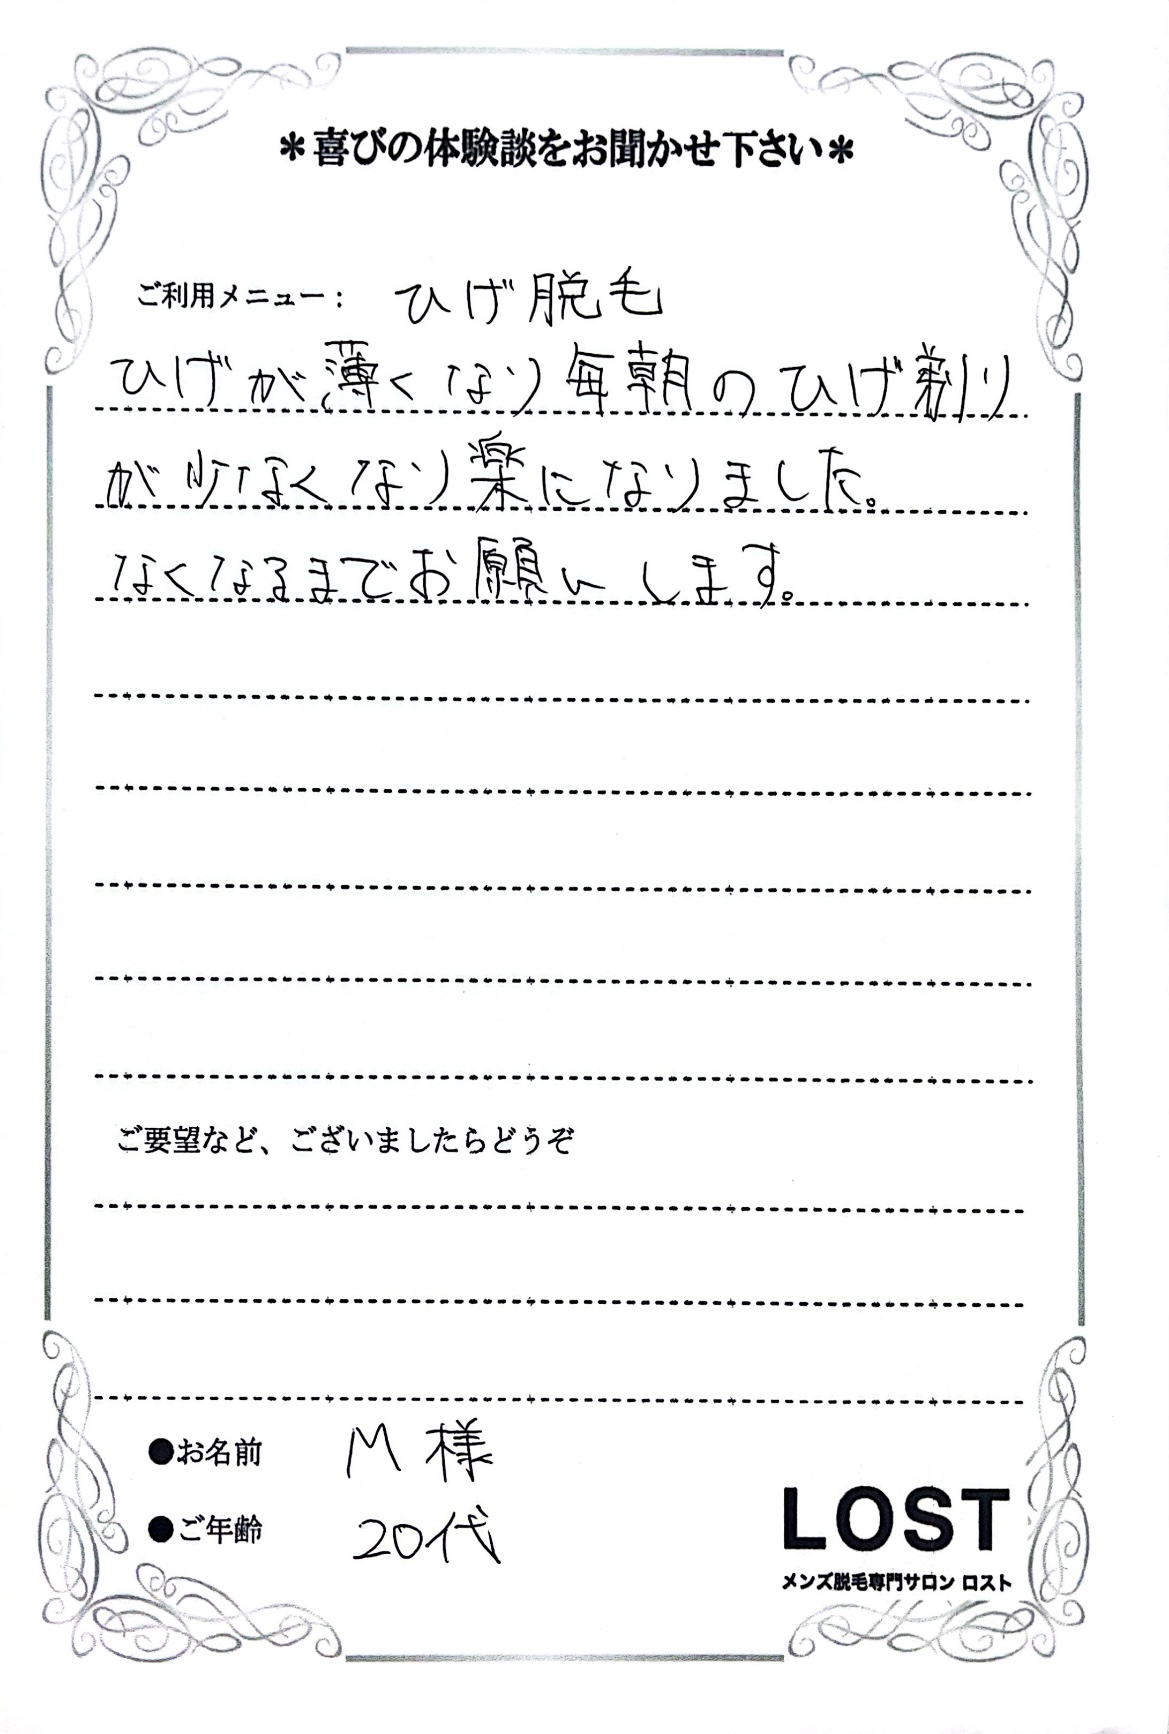 ＊喜びの体験談をお聞かせ下さい＊
ご利用メニュー： ひげ脱毛
ひげが薄くなり毎朝のひげ剃り
が少なくなり楽になりました。
なくなるまでお願いします。
ご要望など、ございましたらどうぞ
●お名前 M様
●ご年齢 20代
LOST
メンズ脱毛専門サロン ロスト